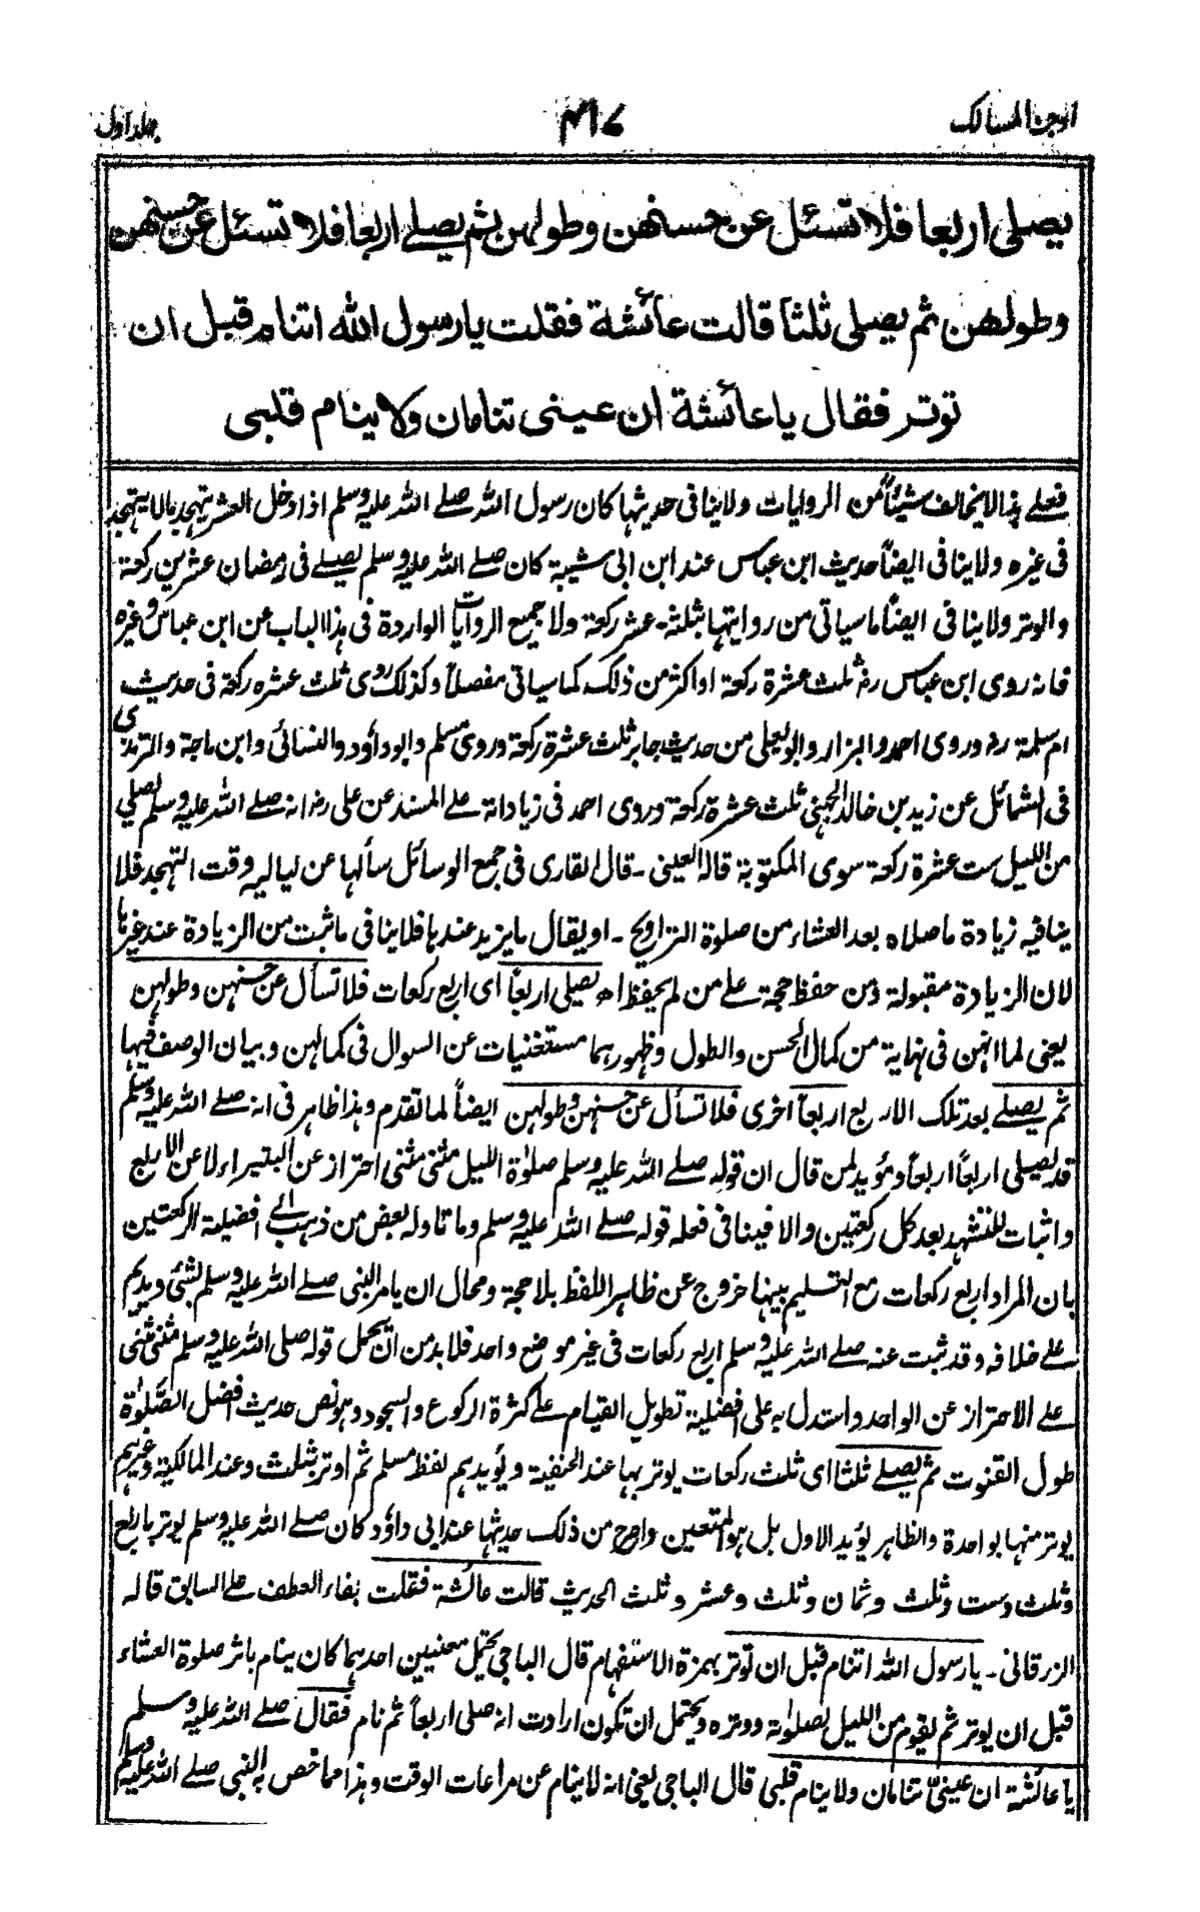 اوجز المسالک
۴۱۷
جلد اول
يصلى اربعا فلا تسئل عن حسنهن وطولهن ثم يصلے اربعا فلا تسئل عن حسنهن
وطولهن ثم يصلى ثلثا قالت عائشة فقلت يا رسول الله اتنام قبل ان
توتر فقال يا عائشة ان عينى تنامان ولا ينام قلبى
فعلے هذا لا يخالف شيئاً من الروايات ولا ينافى حديثها كان رسول الله صلے الله عليه وسلم اذا دخل العشر يتهجد مالا يتهجد
فى غيره ولا ينافى ايضاً حديث ابن عباس عند ابن ابى شيبة كان صلے الله عليه وسلم يصلے فى رمضان عشرين ركعة
والوتر ولا ينافى ايضاً ما سياتى من روايتها بثلثة عشر ركعة ولا جميع الروايات الواردة فى هذا الباب عن ابن عباس وغيره
فانه روى ابن عباس رض ثلث عشرة ركعة او اكثر من ذلك كما سياتى مفصلاً وكذلك روى ثلث عشره ركعة فى حديث
ام سلمة رض وروى احمد والبزار وابو يعلى من حديث جابر ثلث عشرة ركعة وروى مسلم وابو داؤد والنسائى وابن ماجة والترمذى
فى الشمائل عن زيد بن خالد الجهنى ثلث عشرة ركعة وروى احمد فى زياداته علے المسند عن على رض انه صلے الله عليه وسلم يصلى
من الليل ست عشرة ركعة سوى المكتوبة قاله العينى ـ قال القارى فى جمع الوسائل سألها عن لياليه وقت التهجد فلا
ينافيه زيادة ما صلاه بعد العشاء من صلوة التراويح ـ او يقال ما يزيد عندها فلا ينافى ما ثبت من الزيادة عند غيرها
لان الزيادة مقبولة ومن حفظ حجة علے من لم يحفظ اھ يصلى اربعاً اى اربع ركعات فلا تسأل عن حسنهن وطولهن
يعنى لما انهن فى نهاية من كمال الحسن والطول وظهورهما مستغنيات عن السوال فى كمالهن وبيان الوصف فيها
ثم يصلے بعد تلك الاربع اربعاً اخرى فلا تسأل عن حسنهن وطولهن ايضاً لما تقدم وهذا ظاهر فى انه صلے الله عليه وسلم
قد يصلى اربعاً اربعاً ومؤيد لمن قال ان قوله صلے الله عليه وسلم صلوة الليل مثنى مثنى احتراز عن البتيراء لا عن الاربع
واثبات للتشهد بعد كل ركعتين والا فينافى فعله قوله صلے الله عليه وسلم وما تاوله بعض من ذهب الے افضلية الركعتين
بان المراد اربع ركعات مع التسليم بينها خروج عن ظاهر اللفظ بلا حجة ومحال ان يامر النبى صلے الله عليه وسلم بشئ ويديم
علے خلافه وقد ثبت عنه صلے الله عليه وسلم اربع ركعات فى غير موضع واحد فلا بد من ان يحمل قوله صلى الله عليه وسلم مثنى مثنى
علے الاحتراز عن الواحد واستدل به على افضلية تطويل القيام علے كثرة الركوع والسجود وهو نص حديث افضل الصلوة
طول القنوت ثم يصلے ثلثا اى ثلث ركعات يوتر بها عند الحنفية ويؤيدهم لفظ مسلم ثم اوتر بثلث وعند المالكية وغيرهم
يوتر منها بواحدة والظاهر يؤيد الاول بل هو المتعين واصرح من ذلك حديثها عند ابى داؤد كان صلے الله عليه وسلم يوتر باربع
وثلث وست وثلث وثمان وثلث وعشر وثلث الحديث قالت عائشة فقلت بفاء العطف علے السابق قاله
الزرقانى ـ يا رسول الله اتنام قبل ان توتر بهمزة الاستفهام قال الباجى يحتمل معنيين احدهما كان ينام باثر صلوة العشاء
قبل ان يوتر ثم يقوم من الليل لصلوته ووتره ويحتمل ان تكون ارادت انه صلى اربعاً ثم نام فقال صلے الله عليه وسلم
يا عائشة ان عينىّ تنامان ولا ينام قلبى قال الباجى يعنى انه لا ينام عن مراعات الوقت وهذا مما خص به النبى صلے الله عليه وسلم